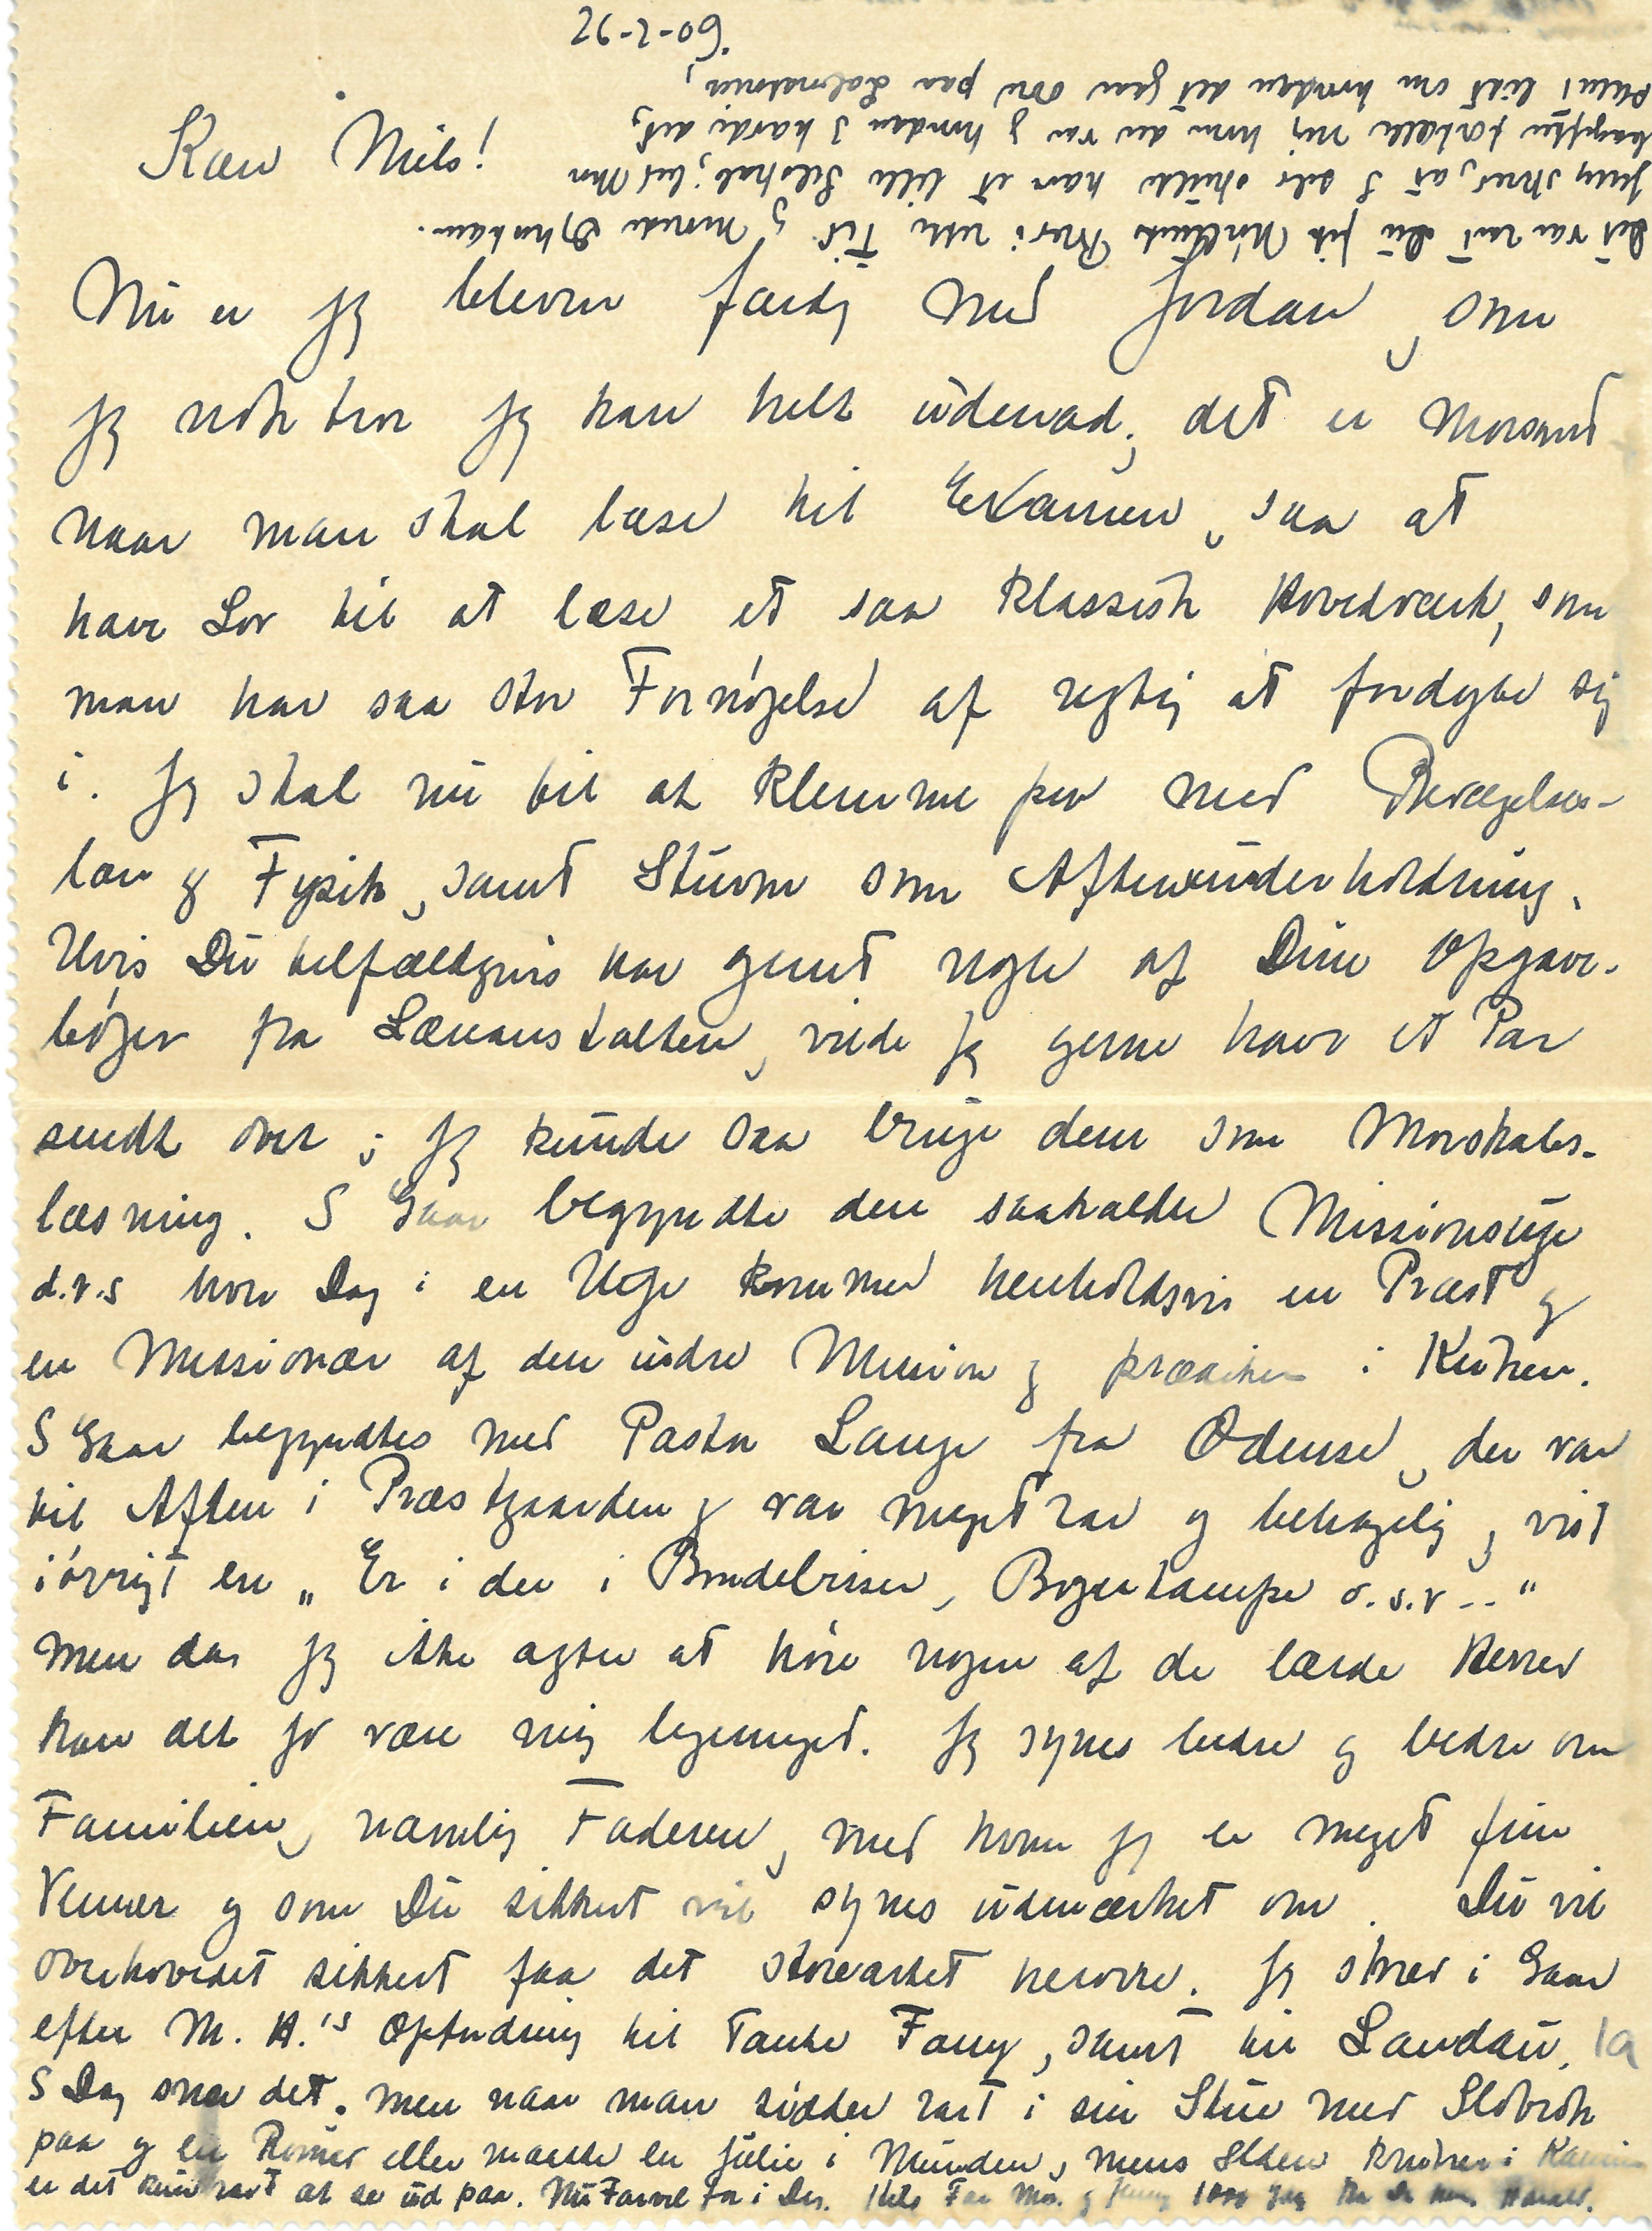 Kære Niels!
Nu er jeg bleven færdig med Jordan, som
jeg nok tror jeg kan helt udenad; det er morsomt
naar man skal læse til Examen, saa at
have Lov til at læse et saa klassisk Hovedværk, som
man har saa stor Fornøjelse af rigtig at fordybe sig
i. Jeg skal nu til at klemme paa med Bevægelses-
lære og Fysik, samt Sturm som Aftenunderholdning.
Hvis Du tilfældigvis har gemt nogle af Dine Opgave-
bøger fra Læreanstalten, vilde jeg gerne have et Par
sendt over; jeg kunde saa bruge dem som Morskabs-
læsning. I Gaar begyndte den saakaldte Missionsuge
d.v.s hver Dag i en Uge kommer henholdsvis en Præst og
en Missionær af den indre Mission og prædiker i Kirken.
I Gaar begyndtes med Pastor Lange fra Odense, der var
til Aften i Præstgaarden og var meget rar og behagelig, vist
iøvrigt en „Er i der i Bondebrisen, Bogenkampe o.s.v..“
men da jeg ikke agter at høre nogen af de lærde Herrer
kan det jo være mig ligemeget. Jeg synes bedre og bedre om
Familien, navnlig Faderen, med hvem jeg er meget fine
Venner og som Du sikkert vil synes udmærket om. Du vil
overhovedet sikkert faa det storartet herovre. Jeg skrev i Gaar
efter M. H.'s Opfordring til Tante Fanny, samt til Landau.
I Dag sner det. men naar man sidder rart i sin Stue med Slobrok
paa og en eller maaske en Julie i Munden, mens Ilden knitrer i Kaminen
er det kun rart at se ud paa. Nu Farvel for i Dag. Hils Far Mor og Jenny 1000 Gange fra Din Harald.
Det var rart Du fik Nørlunds Brev i rette Tid og morede Dig
Jenny skrev, at I selv skulde have et lille Selskab; lad Mor
bagefter fortælle mig hvem der var og hvordan I havde det,
samt lidt om hvordan det gaar oven paa Laboratoriet,
60-2-92